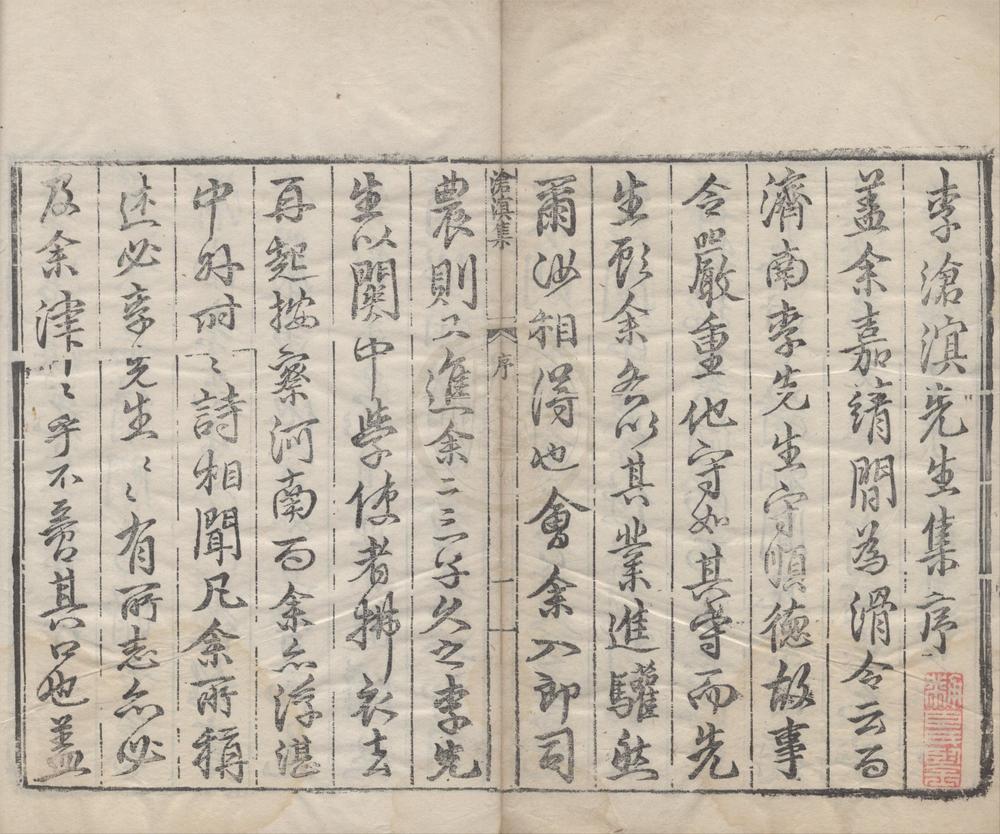 李滄溟先生集序
蓋余嘉靖間為滑令云而
濟南李先生守順德故事
令嚴重他守如其守而先
生顧余各以其業進驩然
爾汝相得也會余入郎司
滄溟集
序
一
農則又進余二三子久之李先
生以關中學使者拂衣去
再起按察河南而余亦浮湛
中外時〻詩相聞凡余所稱
述必李先生〻有所志亦必
及余津〻乎不啻其口也蓋